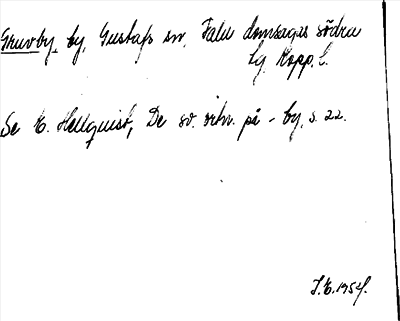 Gruvby, by, Gustafs sn, Falu domsagas södra
tg. Kopp. l.
Se E. Hellquist, De sv. ortn. på -by, s. 22.
J.E. 1954.